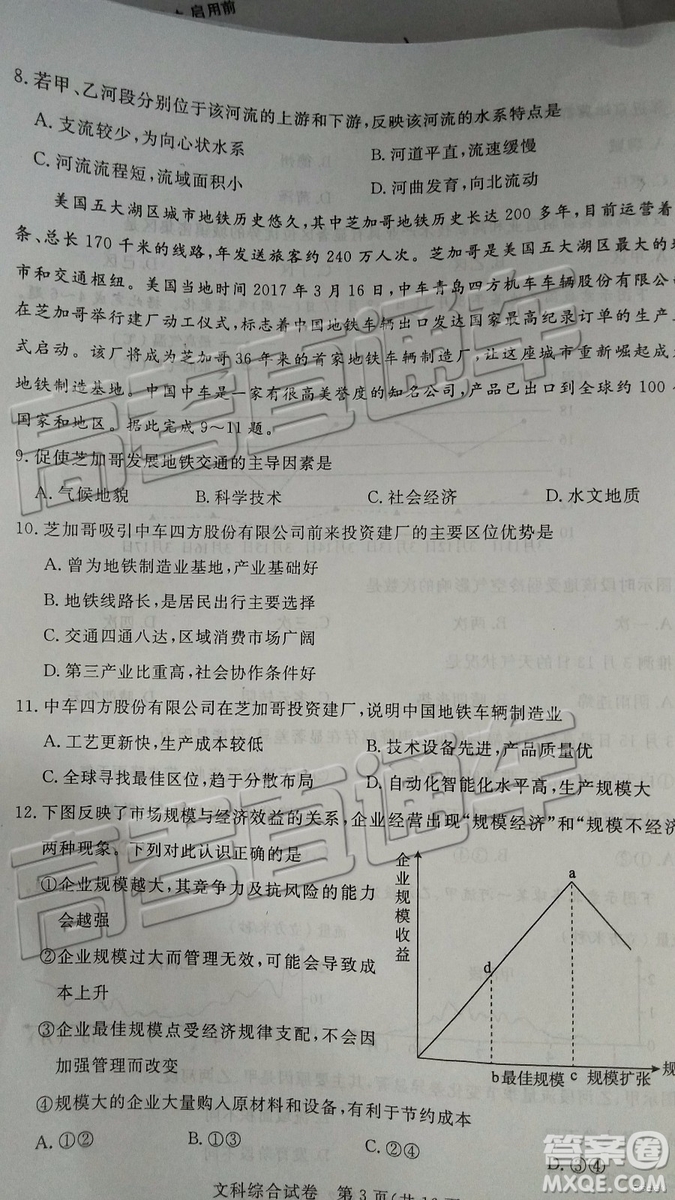 启用前
8. 若甲、乙河段分别位于该河流的上游和下游,反映该河流的水系特点是
A. 支流较少,为向心状水系
B. 河道平直,流速缓慢
C. 河流流程短,流域面积小
D. 河曲发育,向北流动
美国五大湖区城市地铁历史悠久,其中芝加哥地铁历史长达 200 多年,目前运营着
条、总长 170 千米的线路,年发送旅客约 240 万人次。芝加哥是美国五大湖区最大的
市和交通枢纽。美国当地时间 2017 年 3 月 16 日,中车青岛四方机车车辆股份有限公
在芝加哥举行建厂动工仪式,标志着中国地铁车辆出口发达国家最高纪录订单的生产
式启动。该厂将成为芝加哥 36 年来的首家地铁车辆制造厂,让这座城市重新崛起成
地铁制造基地。中国中车是一家有很高美誉度的知名公司,产品已出口到全球约 100
国家和地区。据此完成 9～11 题。
9. 促使芝加哥发展地铁交通的主导因素是
A. 气候地貌
B. 科学技术
C. 社会经济
D. 水文地质
10. 芝加哥吸引中车四方股份有限公司前来投资建厂的主要区位优势是
A. 曾为地铁制造业基地,产业基础好
B. 地铁线路长,是居民出行主要工具
C. 交通四通八达,区域消费市场广阔
D. 第三产业比重高,社会协作条件好
11. 中车四方股份有限公司在芝加哥投资建厂,说明中国地铁车辆制造业
A. 工艺更新快,生产成本较低
B. 技术设备先进,产品质量优
C. 全球寻找最佳区位,趋于分散布局
D. 自动化智能化水平高,生产规模大
12. 下图反映了市场规模与经济效益的关系,企业经营出现“规模经济”和“规模不经济
两种现象。下列对此认识正确的是
①企业规模越大,其竞争力及抗风险的能力
会越强
②企业规模过大而管理无效,可能会导致成
本上升
③企业最佳规模点受经济规律支配,不会因
加强管理而改变
④规模大的企业大量购入原材料和设备,有利于节约成本
A. ①②
B. ①③
C. ②④
D. ③④
企业规模收益
a
d
b
最佳规模
c
规模扩张
规
文科综合试卷 第 3 页
高考直通车
高考直通车
答案圈
MXQE.COM